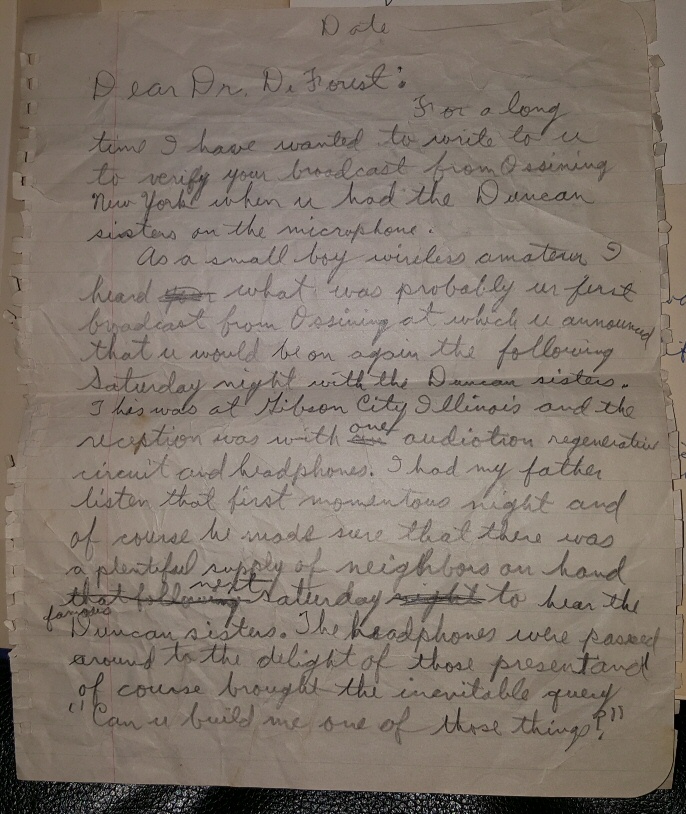 Date
Dear Dr. De Forest:
For a long
time I have wanted to write to u
to verify your broadcast from Ossining
New York when u had the Duncan
sisters on the microphone.
As a small boy wireless amateur I
heard what was probably ur first
broadcast from Ossining at which u announced
that u would be on again the following
Saturday night with the Duncan sisters.
This was at Gibson City Illinois and the
reception was with one audiotron regenerative
circuit and headphones. I had my father
listen that first momentous night and
of course he made sure that there was
a plentiful supply of neighbors on hand
next
that following Saturday night to hear the
famous
Duncan sisters. The headphones were passed
around to the delight of those present and
of course brought the inevitable query
"Can u build me one of those things?"